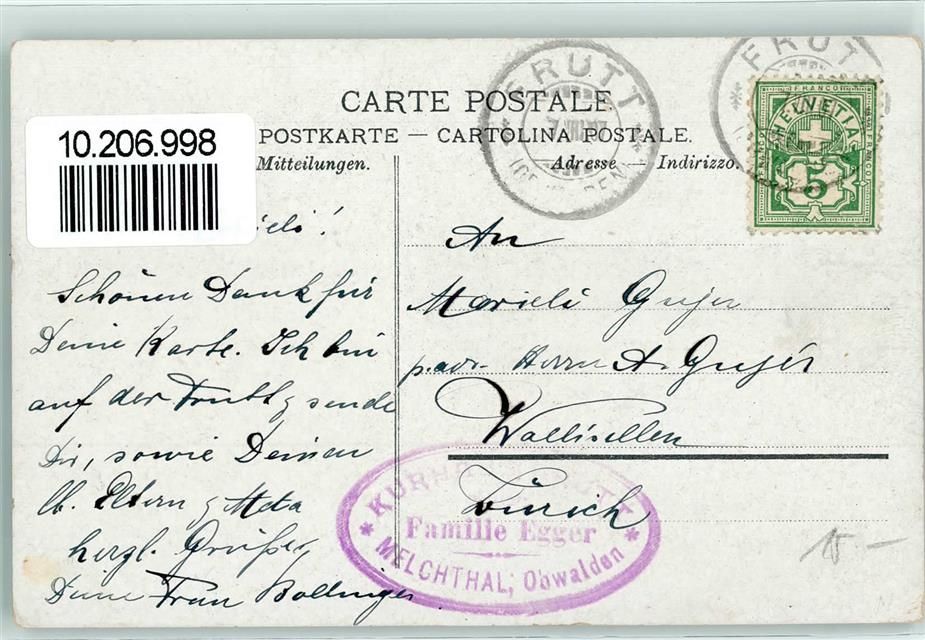 CARTE POSTALE
10.206.998
POSTKARTE — CARTOLINA POSTALE.
Mitteilungen.
Adresse — Indirizzo.
FRUTT
FRUTT
FRANCO
HELVETIA
5
Schönen Dank für
Deine Karte. Ich bin
auf der Frutt & sende
Dir, sowie Deinen
lb. Eltern & Meta
herzl. Grüsse,
Deine Frau Bollinger
An
Marieli Gujer
p. adr. Herrn A. Gujer
Wallisellen
Zürich
KURHAUS FRUTT
Familie Egger
MELCHTHAL, Obwalden
15.—